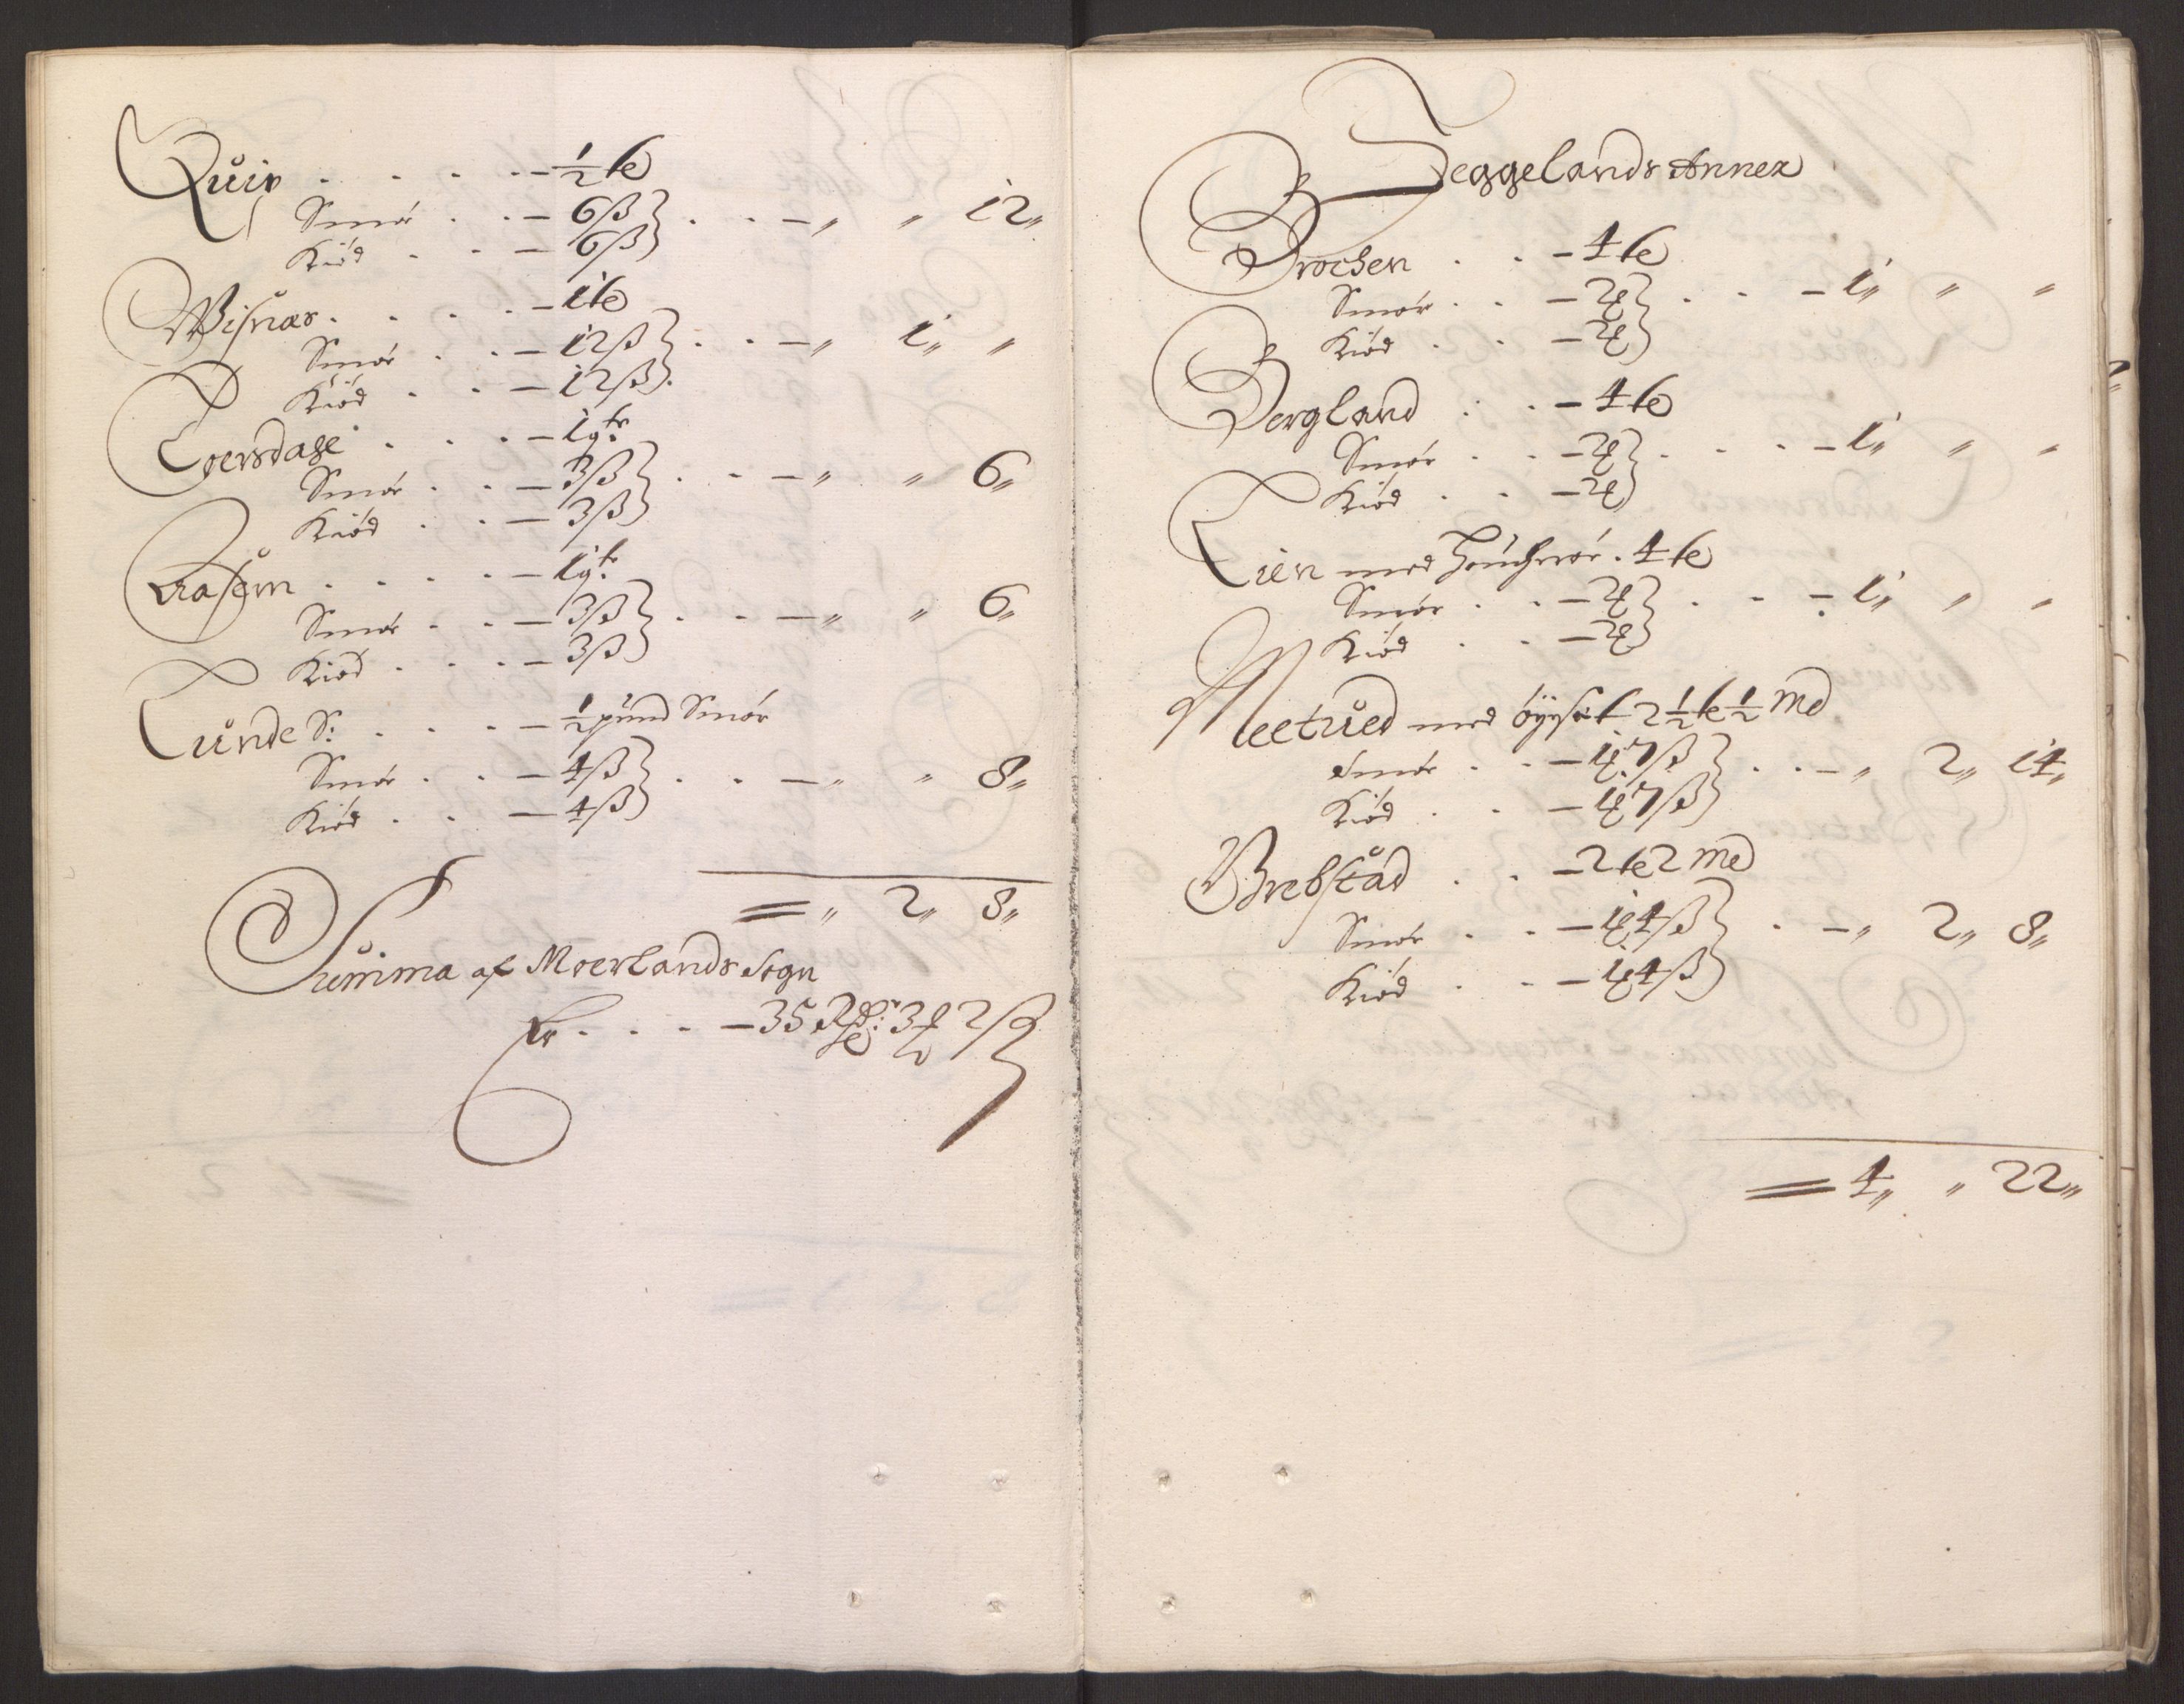 Quip . . . . — ½ te
Smør . . — 6 ß } . . — „ „ 12„
Kiød . . — 6 ß
Wisnæs . . . . — 1 te
Smør . . — 12 ß } . . — „ 1„ „
Kiød . . — 12 ß
Toersdahl . . . — 1 qtr
Smør . . — 3 ß } . . — „ „ 6„
Kiød . . — 3 ß
. . . . — 1 qtr
Smør . . — 3 ß } . . — „ „ 6„
Kiød . . . — 3 ß
Lunde S: . . . — ½ pund Smør
Smør . . — 4 ß } . . — „ „ 8„
Kiød . . — 4 ß
= „ 2„ 8„
Summa af Moerlands Sogn
Er . . . — 35 Rdr: 3 2 ß
Heggelands Annex
Brochen . . — 4 te
Smør . . — 2 } . . — 1„ „ „
Kiød . . — 2
Bergland . . — 4 te
Smør . . — 2 } . . . — 1„ „ „
Kiød . . — 2
Lien med . 4 te
Smør . . — 2 } . . — 1„ „ „
Kiød . . — 2
Meetued med øÿset 2½ te ½ md
Smør . . — 1 7 ß } . . — „ 2„ 14„
Kiød . . — 1 7 ß
Brebstad . . — 2 te 2 md
Smør . . — 1 4 ß } . — „ 2„ 8„
Kiød . . — 1 4 ß
= 4„ „ 22„